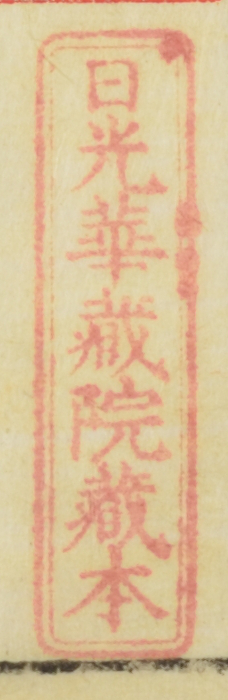 日光華蔵院藏本